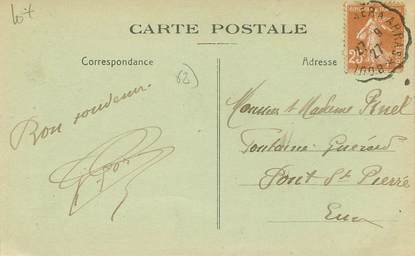 CARTE POSTALE
Correspondance
Adresse
Bon souvenir.
Monsieur et Madame Pinel
Fontaine Guérard
Pont St Pierre
Eure
25